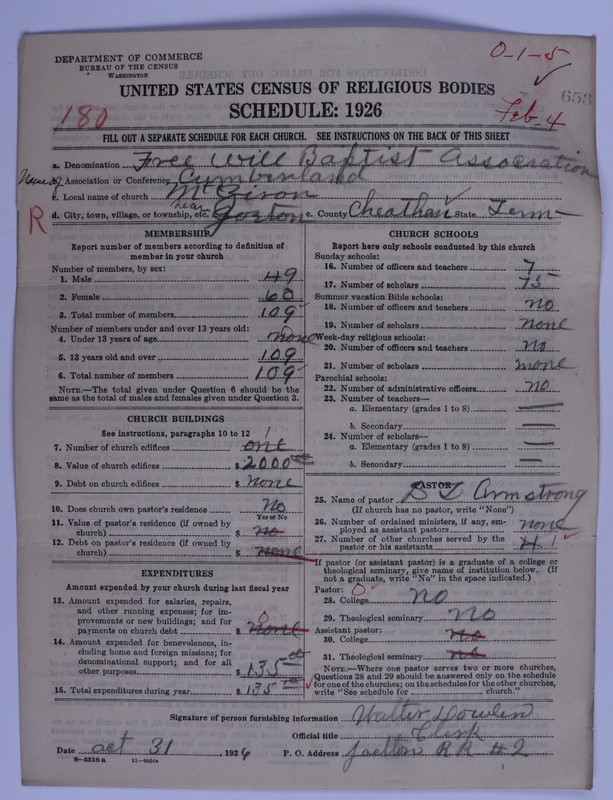 DEPARTMENT OF COMMERCE
BUREAU OF THE CENSUS
WASHINGTON
0-1-5
UNITED STATES CENSUS OF RELIGIOUS BODIES
653
180
SCHEDULE: 1926
Feb-4
FILL OUT A SEPARATE SCHEDULE FOR EACH CHURCH. SEE INSTRUCTIONS ON THE BACK OF THIS SHEET
a. Denomination Free Will Baptist Association
Name of b. Association or Conference Cumberland
c. Local name of church Mt Zion
R d. City, town, village, or township, etc. near e. County Cheatham State Tenn
MEMBERSHIP
Report number of members according to definition of
member in your church
Number of members, by sex:
1. Male 49
2. Female 60
3. Total number of members 109
Number of members under and over 13 years old:
4. Under 13 years of age none 0
5. 13 years old and over 109
6. Total number of members 109
NOTE.—The total given under Question 6 should be the
same as the total of males and females given under Question 3.
CHURCH BUILDINGS
See instructions, paragraphs 10 to 12
7. Number of church edifices one 1
8. Value of church edifices $ 2000 00
9. Debt on church edifices $ none
10. Does church own pastor's residence no
Yes or No
11. Value of pastor's residence (if owned by
church) $ no
12. Debt on pastor's residence (if owned by
church) $ none
EXPENDITURES
Amount expended by your church during last fiscal year
13. Amount expended for salaries, repairs,
and other running expenses; for im-
provements or new buildings; and for
payments on church debt $ none 0
14. Amount expended for benevolences, in-
cluding home and foreign missions; for
denominational support; and for all
other purposes $ 135 00
15. Total expenditures during year $ 135 00
CHURCH SCHOOLS
Report here only schools conducted by this church
Sunday schools:
16. Number of officers and teachers 7
17. Number of scholars 75
Summer vacation Bible schools:
18. Number of officers and teachers no
19. Number of scholars none
Week-day religious schools:
20. Number of officers and teachers no
21. Number of scholars none
Parochial schools:
22. Number of administrative officers no
23. Number of teachers—
a. Elementary (grades 1 to 8)
b. Secondary
24. Number of scholars—
a. Elementary (grades 1 to 8)
b. Secondary
PASTOR
25. Name of pastor Armstrong
(If church has no pastor, write "None")
26. Number of ordained ministers, if any, em-
ployed as assistant pastors none
27. Number of other churches served by the
pastor or his assistants 1
If pastor (or assistant pastor) is a graduate of a college or
theological seminary, give name of institution below. (If
not a graduate, write "No" in the space indicated.)
Pastor: 0
28. College no
29. Theological seminary no
Assistant pastor:
30. College no
31. Theological seminary no
NOTE.—Where one pastor serves two or more churches,
Questions 28 and 29 should be answered only on the schedule
for one of the churches; on the schedules for the other churches,
write "See schedule for ______ church."
Signature of person furnishing information Walter Dowlen
Official title Clerk
Date oct 31, 1926 P. O. Address R R # 2
8-5518 a